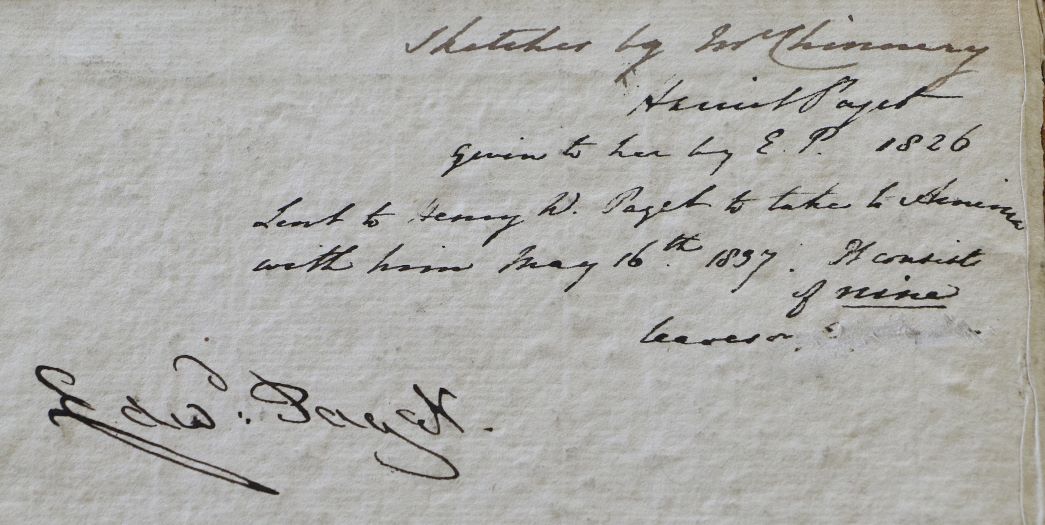 Sketches by Mr Chinnery
Harriet Paget
given to her by E. P. 1826
Lent to Henry W. Paget to take to America
with him May 16th 1837. It consist
of nine
leaves
Edwd. Paget.